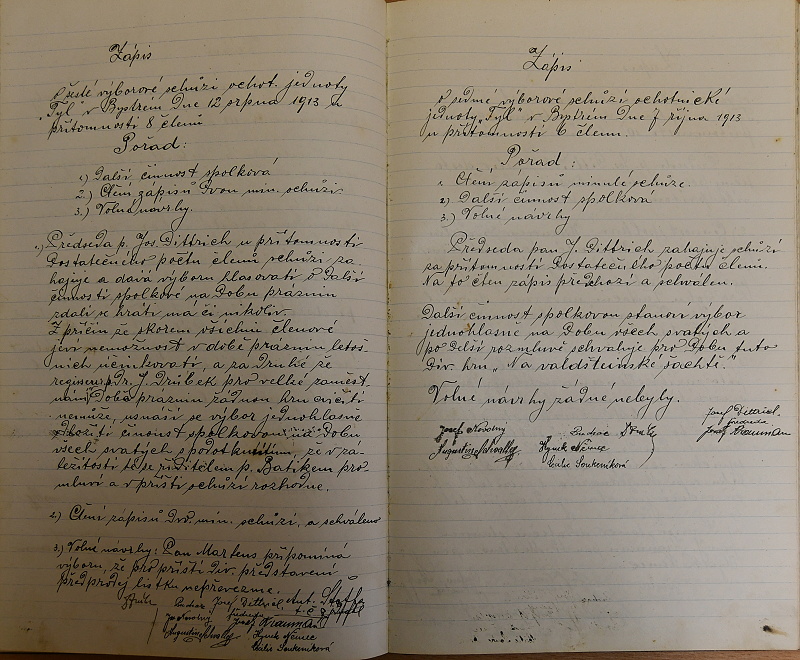 Zápis
o šesté výborové schůzi ochot. jednoty
„Tyl" v Bystrém Dne 12 srpna 1913 za
přítomnosti 8 členů
Pořad:
1.) Další činnost spolková
2.) Čtení zápisů Dvou min. schůzí.
3.) Volné návrhy.
1.) Předseda p. Jos. Dittrich u přítomnosti
Dostatečného počtu členů schůzi za-
hajuje a dává výboru hlasovati o Další
činnosti spolkové na Dobu prázdnin
zdali se hráti má či nikoliv.
Z příčin že skorem všichni členové
jeví nemožnost v době prázdnin letoš-
ních účinkovati, a za Druhé že
regisseur p. Dr. J. Drábek pro velké zaměst-
nání Dobu prázdnin žádnou hru cvičiti
nemůže, usnáší se výbor jednohlasně
odložiti činnost spolkovou na Dobu
všech svatých s podotknutím, že v zá-
ležitosti té se ředitelem p. Batíkem pro-
mluví a v příští schůzi rozhodne.
2.) Čtení zápisů Dvo. min. schůzí, a schváleno
3.) Volné návrhy: Pan Martens připomíná
výboru, že pro příští Div. představení
předprodej lístků nepřevezme.
Josef Dittrich, Ant.
Jos Novotný předseda
Josef Krauman
Hynek Němec
Cecilie Soukeníková
Zápis
o sedmé výborové schůzi ochotnické
jednoty „Tyl" v Bystrém Dne 7 října 1913
u přítomnosti 6 členů.
Pořad:
1. Čtení zápisů minulé schůze.
2) Další činnost spolková
3.) Volné návrhy
Předseda pan J. Dittrich zahajuje schůzi
za přítomnosti Dostatečného počtu členů.
Na to čten zápis předchozí a schválen.
Další činnost spolkovou stanoví výbor
jednohlasně na Dobu všech svatých a
po Delší rozmluvě schvaluje pro Dobu tuto
Div. hru „Na valdštýnské šachtě."
Volné návrhy žádné nebyly.
Josef Dittrich
předseda
Josef Novotný
Josef Krauman
Hynek Němec
Cecilie Soukeníková